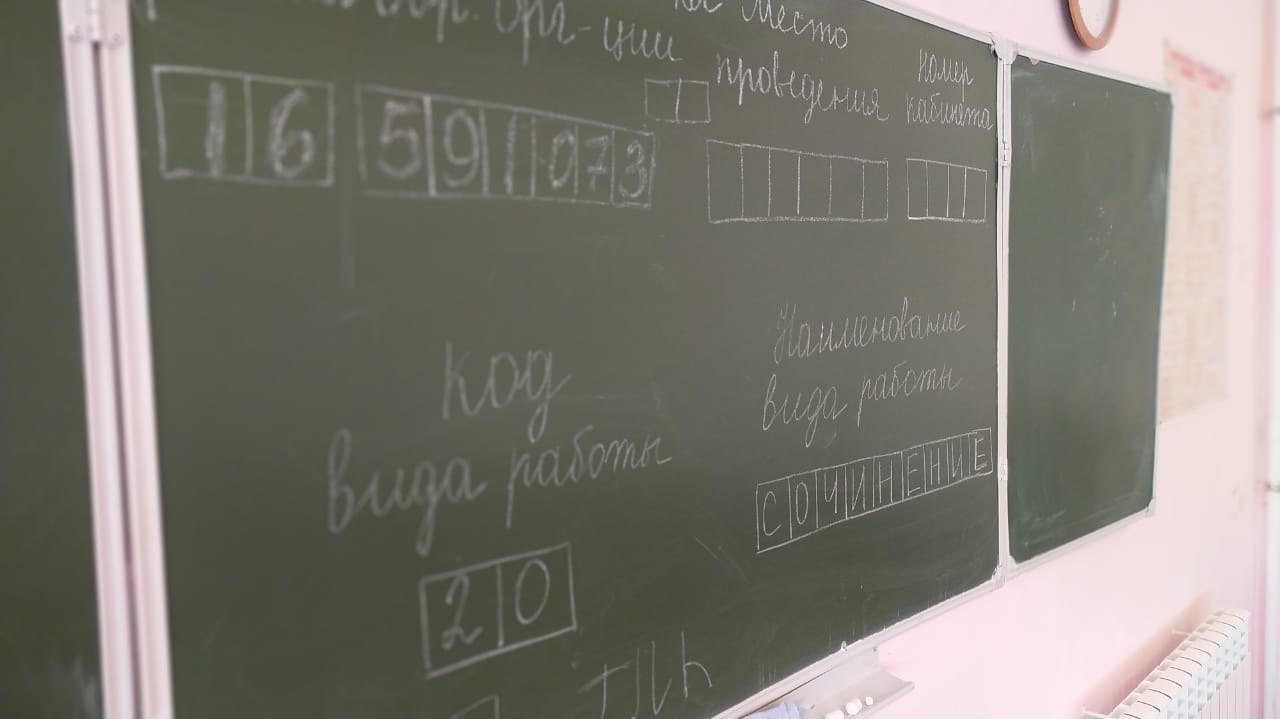 орг-ции
место
проведения
номер
кабинета
16 591073
код
вида работы
20
Наименование
вида работы
СОЧИНЕНИЕ